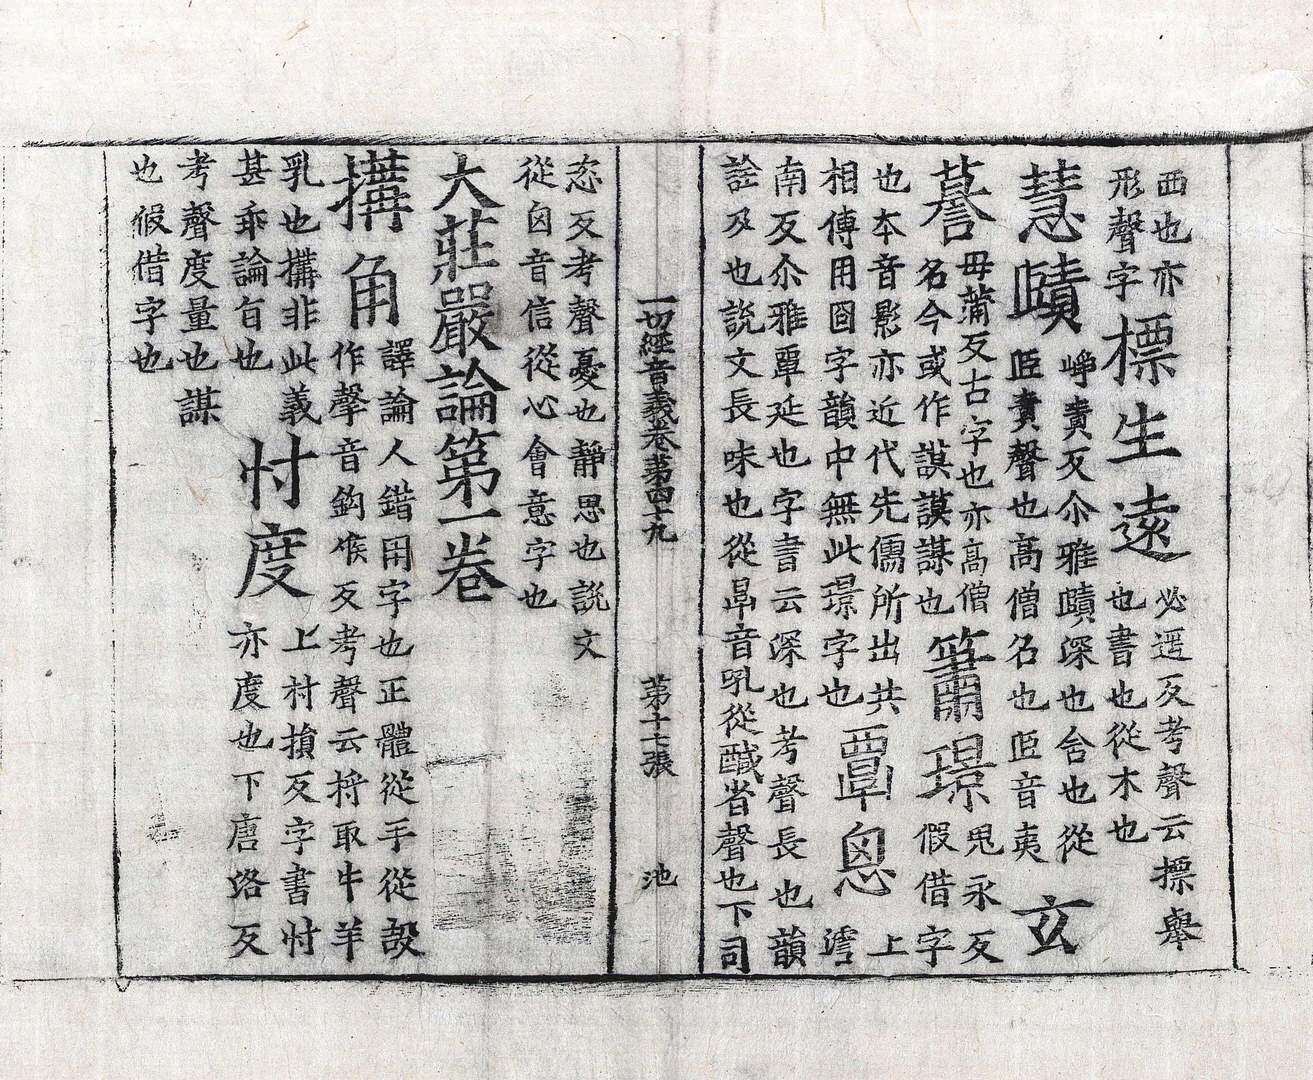 西也亦
形聲字
標生遠
必遥反考聲云摽舉
也書也從木也
慧賾
崢責反尒雅賾深也舍也從
𦣞責聲也高僧名也𦣞音夷
玄
謩
毋蒲反古字也亦高僧
名今或作謨謨謀也
簫璟
鬼永反
假借字
也本音影亦近代先儒所出共
相傳用囧字韻中無此璟字也
覃恩
上
南反尒雅覃延也字書云深也考聲長也韻
詮及也說文長味也從㫗音吼從鹹省聲也下司
一切經音義卷第四十九 第十七張 池
恣反考聲憂也靜思也說文
從囟音信從心會意字也
大莊嚴論第一卷
搆角
譯論人錯用字也正體從手從㝅
作聲音鈎候反考聲云捋取牛羊
乳也搆非此義
甚乖論旨也
忖度
上村損反字書忖
亦度也下唐洛反
考聲度量也謀
也假借字也